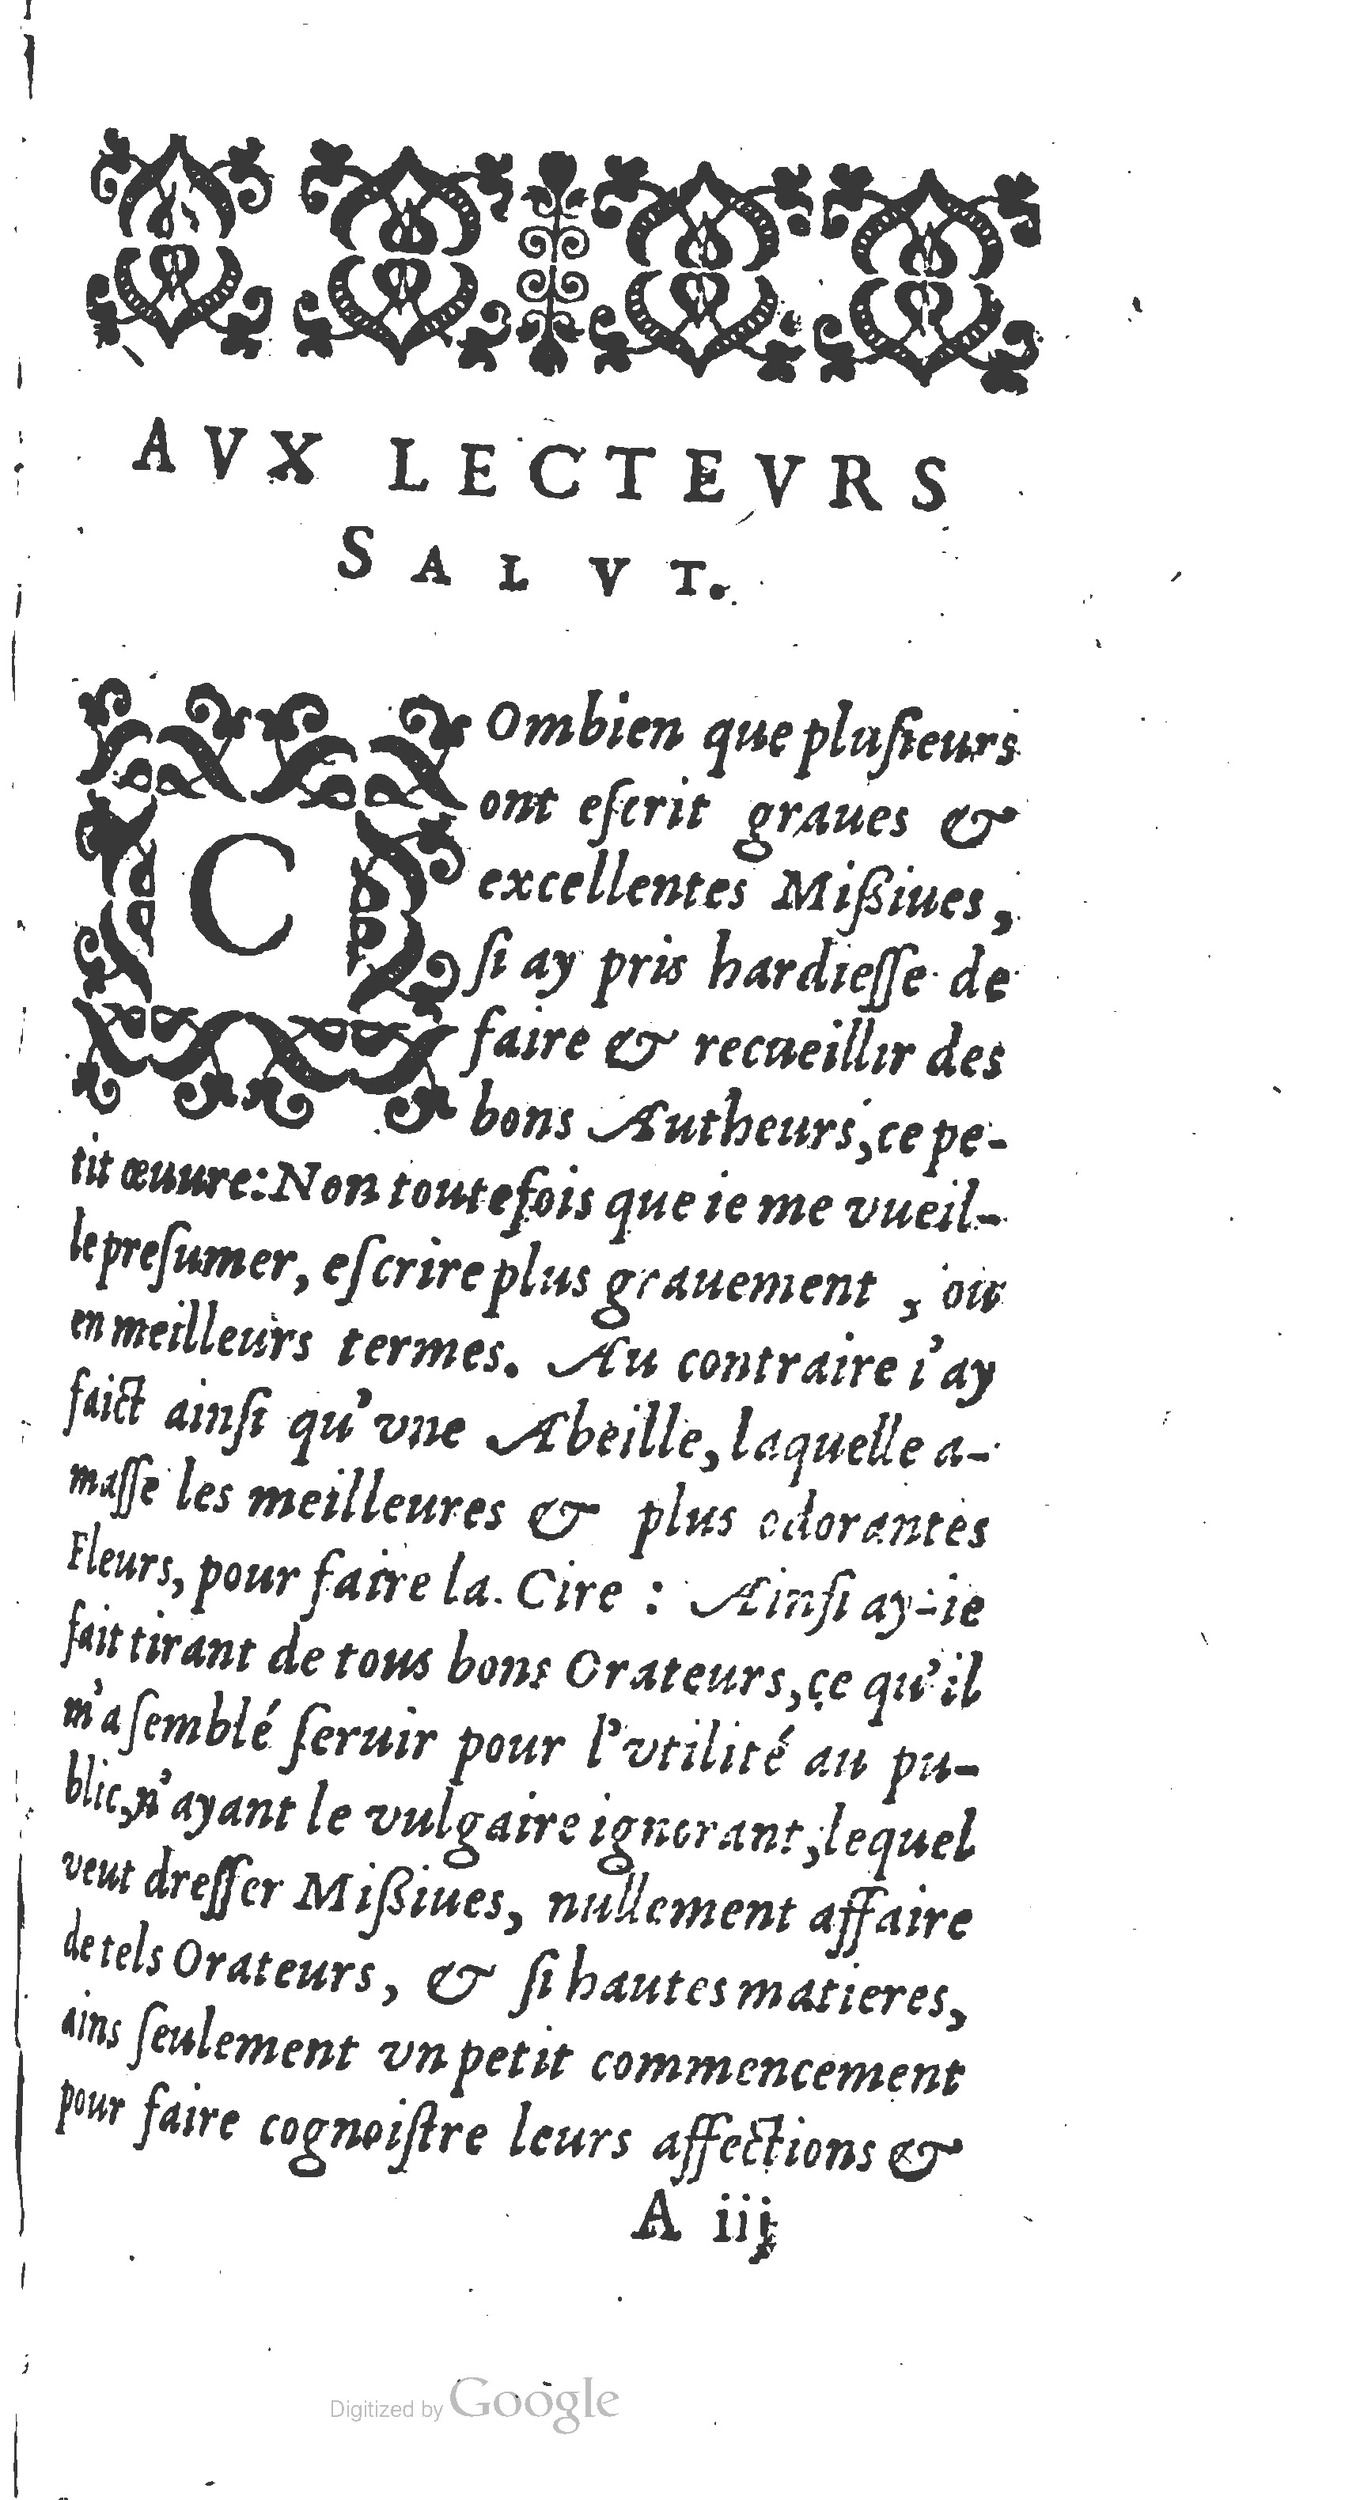 AVX LECTEVRS
SALVT.
COmbien que pluſieurs
ont eſcrit graues &
excellentes Miſsiues,
ſi ay pris hardieſſe de
faire & recueillir des
bons Autheurs, ce pe-
tit œuure: Non toutefois que ie me vueil-
le preſumer, eſcrire plus grauement, ou
en meilleurs termes. Au contraire i'ay
faict ainſi qu'vne Abeille, laquelle a-
maſſe les meilleures & plus odorantes
Fleurs, pour faire la Cire : Ainſi ay-ie
fait tirant de tous bons Orateurs, ce qu'il
m'a ſemblé ſeruir pour l'vtilité au pu-
blic, n'ayant le vulgaire ignorant, lequel
veut dreſſer Miſsiues, nullement affaire
de tels Orateurs, & ſi hautes matieres,
ains ſeulement vn petit commencement
pour faire cognoiſtre leurs affections &
A iij
Digitized by Google